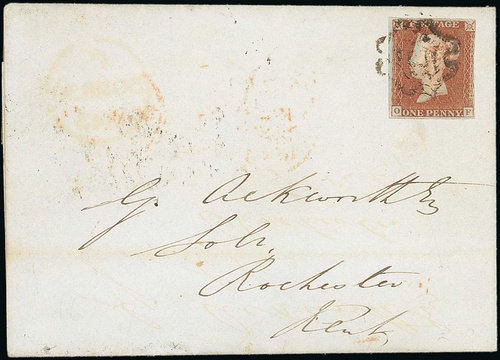 POSTAGE
O F
ONE PENNY
G. Ackworth Esq
Solr.
Rochester
Kent